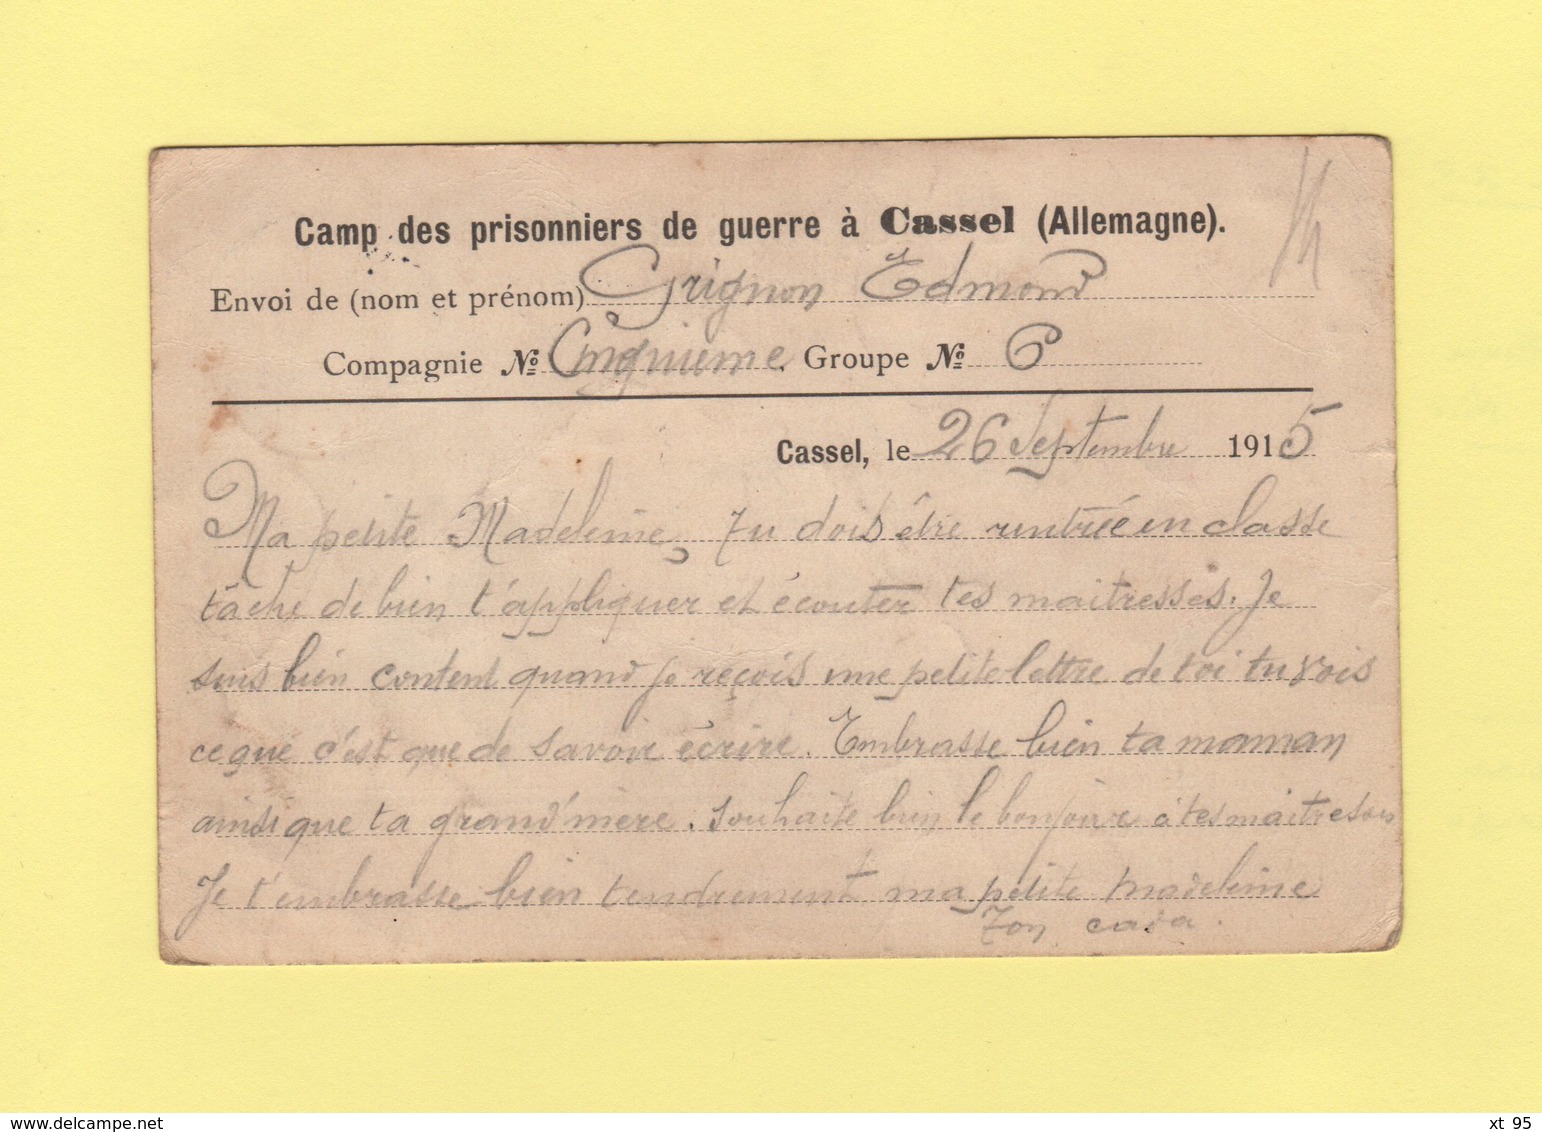 Camp des prisonniers de guerre à Cassel (Allemagne).
Envoi de (nom et prénom) Grignon Edmond
Compagnie № Cinquieme. Groupe № 6
Cassel, le 26 Septembre 1915
Ma petite Madeleine, Tu dois être rentrée en classe
tâche de bien t'appliquer et écouter tes maitresses. Je
suis bien content quand je reçois une petite lettre de toi tu vois
ce que c'est que de savoir écrire. Embrasse bien ta maman
ainsi que ta grand'mère. Souhaite bien le bonjour à tes maitresses
Je t'embrasse bien tendrement ma petite Madeleine
Ton
delcampe.net
xt 95